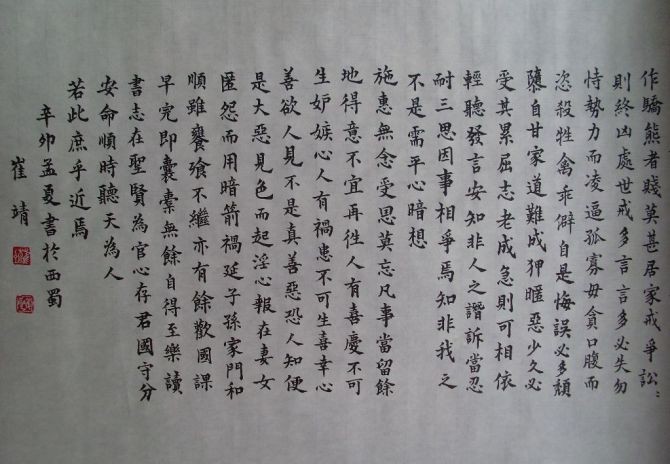 作驕態者賤莫甚居家戒爭訟：
則終凶處世戒多言言多必失勿
恃勢力而凌逼孤寡毋貪口腹而
恣殺牲禽乖僻自是悔誤必多頹
隳自甘家道難成狎暱惡少久必
受其累屈志老成急則可相依
輕聽發言安知非人之譖訴當忍
耐三思因事相爭焉知非我之
不是需平心暗想
施惠無念受恩莫忘凡事當留餘
地得意不宜再往人有喜慶不可
生妒嫉心人有禍患不可生喜幸心
善欲人見不是真善惡恐人知便
是大惡見色而起淫心報在妻女
匿怨而用暗箭禍延子孫家門和
順雖饔飧不繼亦有餘歡國課
早完即囊橐無餘自得至樂讀
書志在聖賢為官心存君國守分
安命順時聽天為人
若此庶乎近焉
辛卯孟夏書於西蜀
崔靖